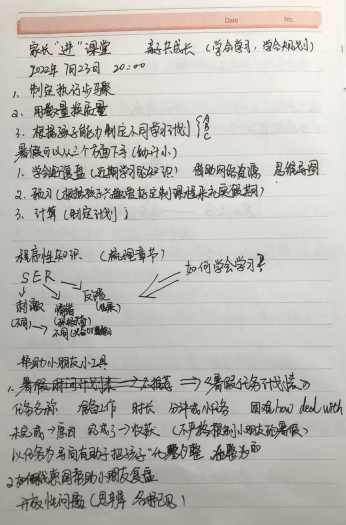 Date No.
家长"进"课堂 亲子共成长 (学会学习,学会规划)
2022年7月23日 20:00
1、制定执行步骤
2、用数量换质量
3、根据孩子能力制定不同学习计划 { A B C
暑假可以从三个方面下手 (幼升小)
1、学会复盘 (近期学习的知识) 借助网络资源 思维导图
2、预习 (根据孩子兴趣爱好定制课程来充实假期)
3、计算 (制定计划)
程序性知识 (梳理章节)
如何学会学习
SER
刺激 情绪 反馈
(不同) (结果)
不同
帮助小朋友小工具
1、暑假时间计划表 不推荐 《暑假任务计划表》
任务名称 准备工作 时长 分解成小任务 困难 how deal with
未完成→原因 完成了→收获 (不严格控制小朋友的暑假)
以任务为导向有助于把孩子"化整为
2、如何帮助小朋友复盘
开放性问题